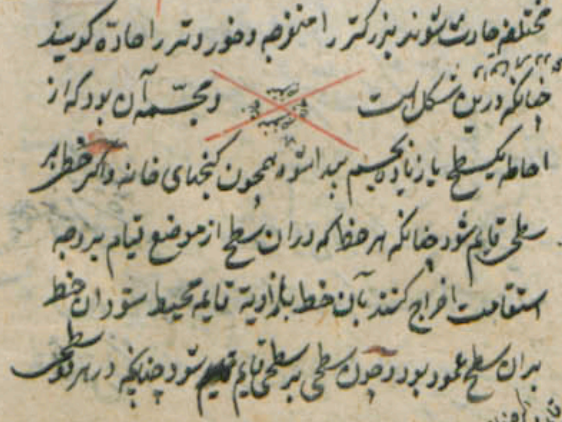 مختلفه حادث شوند بزرگتر را منفرجه و خوردتر را حاده گویند
چنانکه درین شکل است منفرجه حاده منفرجه حاده و مجسمه آن بود که از
احاطه یکسطح یا زیاده بجسم پیدا شود همچون کنجهای خانه و اگر خط بر
سطحی قایم شود چنانکه هر خط که در ان سطح از موضع قیام بر وجه
استقامت اخراج کنند بآن خط بزاویه قایمه محیط شود ان خط
بران سطح عمود بود و چون سطحی بر سطحی قایم شود چنانکه در هر دو سطح